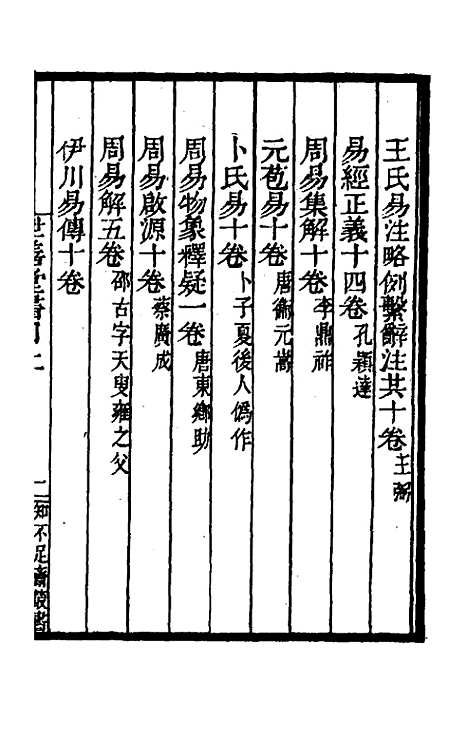 王氏易注略例繫辭注共十卷王弼
易經正義十四卷孔穎達
周易集解十卷李鼎祚
元苞易十卷唐衞元嵩
卜氏易十卷卜子夏後人僞作
周易物象釋疑一卷唐東鄉助
周易啟源十卷蔡廣成
周易解五卷邵古字天叟雍之父
伊川易傳十卷
世善堂書目上
二知不足齋叢書